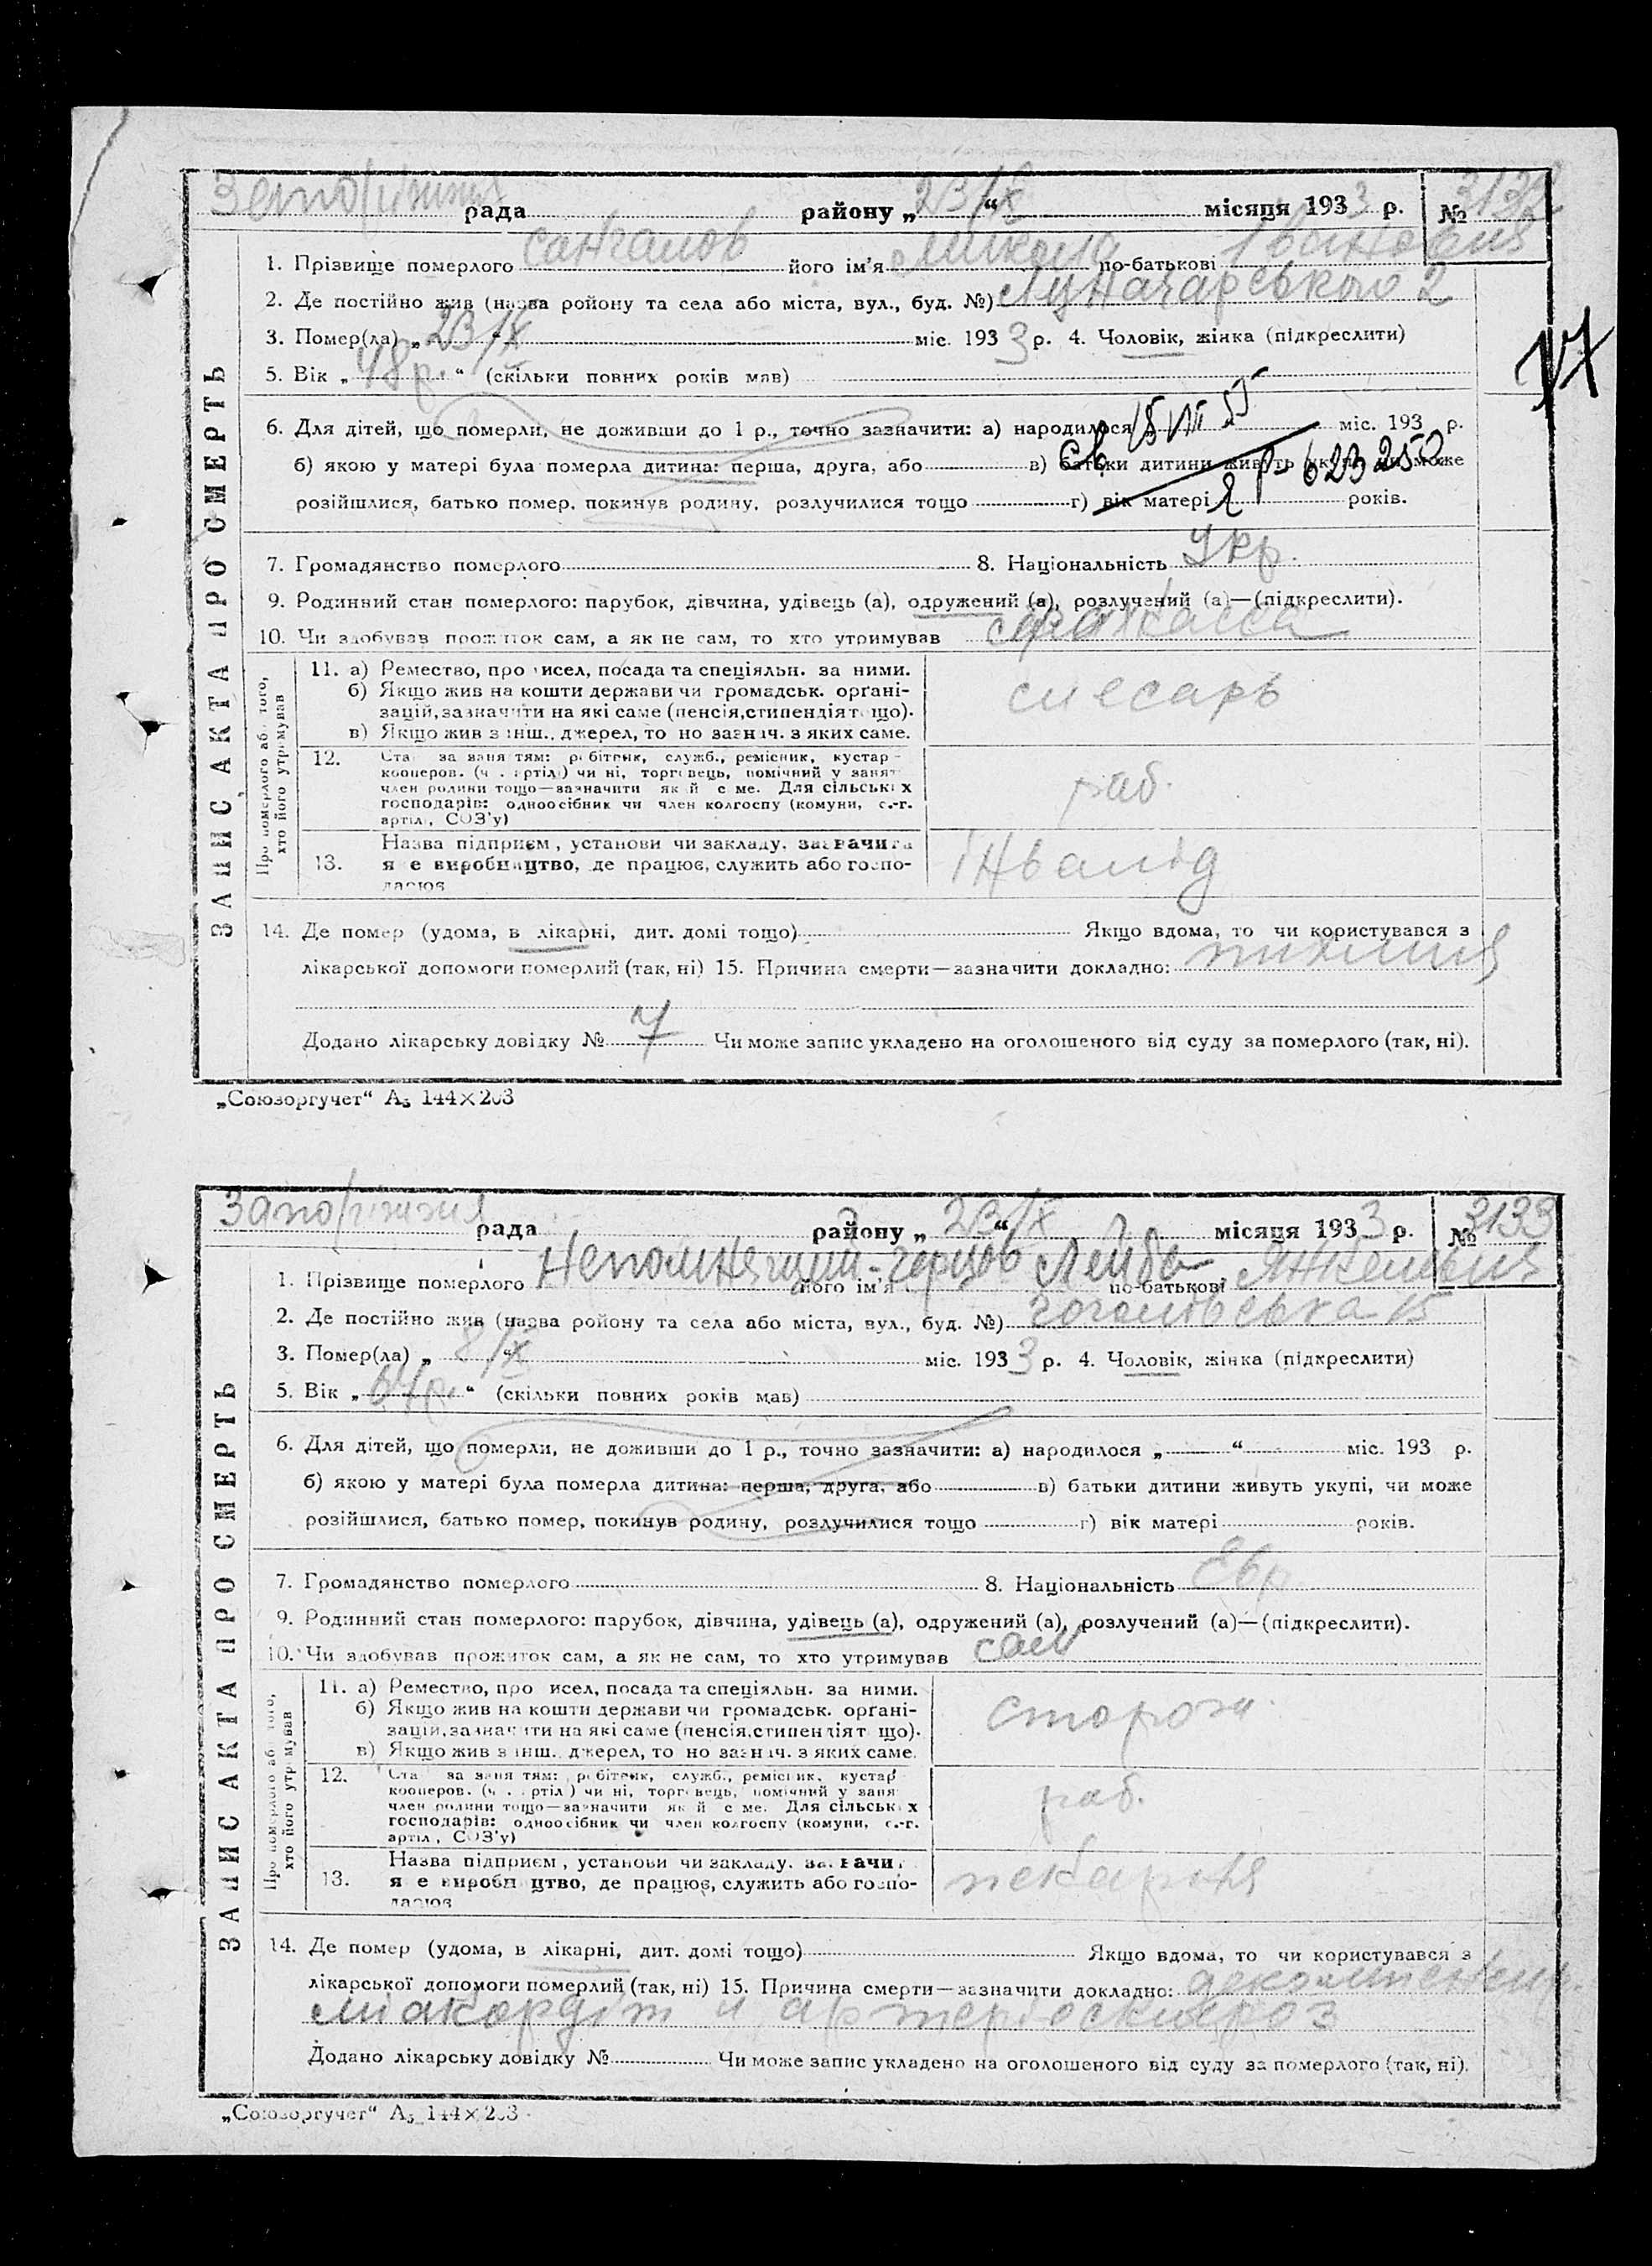 Запоріжжя рада району „ 23/IX “ місяця 1933 р. № 3132
1. Прізвище померлого Сангалов його ім'я Микола по-батькові Іванович
2. Де постійно жив (назва ройону та села або міста, вул., буд. №) Луначарського 2
3. Помер(ла) „ 23/IX “ міс. 1933 р. 4. Чоловік, жінка (підкреслити)
5. Вік „ 48 р. “ (скільки повних років мав)
6. Для дітей, що померли, не доживши до 1 р., точно зазначити: а) народилося 15 VIII 55 міс. 193 р.
б) якою у матері була померла дитина: перша, друга, або в) батьки дитини живуть укупі, чи може
Св 623250
розійшлися, батько помер, покинув родину, розлучилися тощо г) вік матері років.
7. Громадянство померлого 8. Національність Укр.
9. Родинний стан померлого: парубок, дівчина, удівець (а), одружений (а), розлучений (а)—(підкреслити).
10. Чи здобував прожиток сам, а як не сам, то хто утримував страхкасса
11. а) Ремество, про исел, посада та спеціяльн. за ними.
б) Якщо жив на кошти держави чи громадськ. орґані-
зацій, зазначити на які саме (пенсія, стипендія т що).
в) Якщо жив з інш., джерел, то но зазнач. з яких саме.
слесарь
12. Ста за заня тям: робітник, служб., ремісник, кустар-
кооперов. (ч . артіл) чи ні, торговець, помічний у занят
член родини тощо—зазначити як й с ме. Для сільськ х
господарів: одноосібник чи член колгоспу (комуни, с.-г.
артіл, СОЗ'у)
раб.
13. Назва підприєм , установи чи закладу, зазначити
я е виробництво, де працює, служить або госпо-
дарює
інвалід
14. Де помер (удома, в лікарні, дит. домі тощо) Якщо вдома, то чи користувався з
лікарської допомоги померлий (так, ні) 15. Причина смерти—зазначити докладно:
Додано лікарську довідку № 7 Чи може запис укладено на оголошеного від суду за померлого (так, ні).
ЗАПИС АКТА ПРО СМЕРТЬ
Про померлого або того,
хто його утримував
„Союзоргучет“ А₅ 144×203
Запоріжжя рада району „ 23/IX “ місяця 1933 р. № 3133
1. Прізвище померлого Непомнящий-Герцов його ім'я Лейба по-батькові Янкелевич
2. Де постійно жив (назва ройону та села або міста, вул., буд. №) Гоголівська 15
3. Помер(ла) „ 8/IX “ міс. 1933 р. 4. Чоловік, жінка (підкреслити)
5. Вік „ 64 р. “ (скільки повних років мав)
6. Для дітей, що померли, не доживши до 1 р., точно зазначити: а) народилося „ “ міс. 193 р.
б) якою у матері була померла дитина: перша, друга, або в) батьки дитини живуть укупі, чи може
розійшлися, батько помер, покинув родину, розлучилися тощо г) вік матері років.
7. Громадянство померлого 8. Національність Євр.
9. Родинний стан померлого: парубок, дівчина, удівець (а), одружений (а), розлучений (а)—(підкреслити).
10. Чи здобував прожиток сам, а як не сам, то хто утримував сам
11. а) Ремество, про исел, посада та спеціяльн. за ними.
б) Якщо жив на кошти держави чи громадськ. орґані-
зацій, зазначити на які саме (пенсія, стипендія т що).
в) Якщо жив з інш., джерел, то но зазнач. з яких саме.
сторож
12. Ста за заня тям: робітник, служб., ремісник, кустар
кооперов. (ч . артіл ) чи ні, торговець, помічний у заня
член родини тощо—зазначити як й с ме. Для сільськ х
господарів: одноосібник чи член колгоспу (комуни, с.-г.
артіл , СОЗ'у)
раб.
13. Назва підприєм , установи чи закладу, зазначит
я е виробн цтво, де працює, служить або госпо-
дарює
пекарня
14. Де помер (удома, в лікарні, дит. домі тощо) Якщо вдома, то чи користувався з
лікарської допомоги померлий (так, ні) 15. Причина смерти—зазначити докладно: декомпенсир.
міокордіт и артеріосклероз
Додано лікарську довідку № Чи може запис укладено на оголошеного від суду за померлого (так, ні).
ЗАПИС АКТА ПРО СМЕРТЬ
Про померлого або того,
хто його утримував
„Союзоргучет“ А₅ 144×203